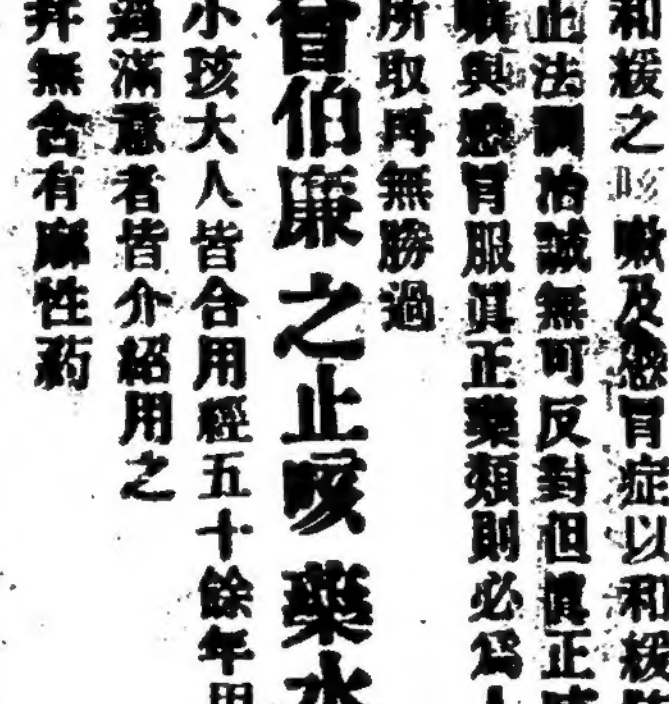 和緩之咳嗽及感冒症以和緩
止法調治誠無可反對但眞正咳
嗽與感冒服眞正藥類則必爲人
所取再無勝過
曾伯廉之止咳藥水
小孩大人皆合用經五十餘年用
過滿意者皆介紹用之
并無含有麻性药